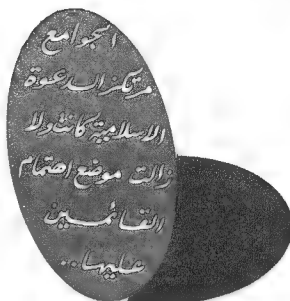 الجوامع
مركز الدعوة
الاسلامية كانت ولا
زالت موضع اهتمام
القائمـــين
عليهـا..